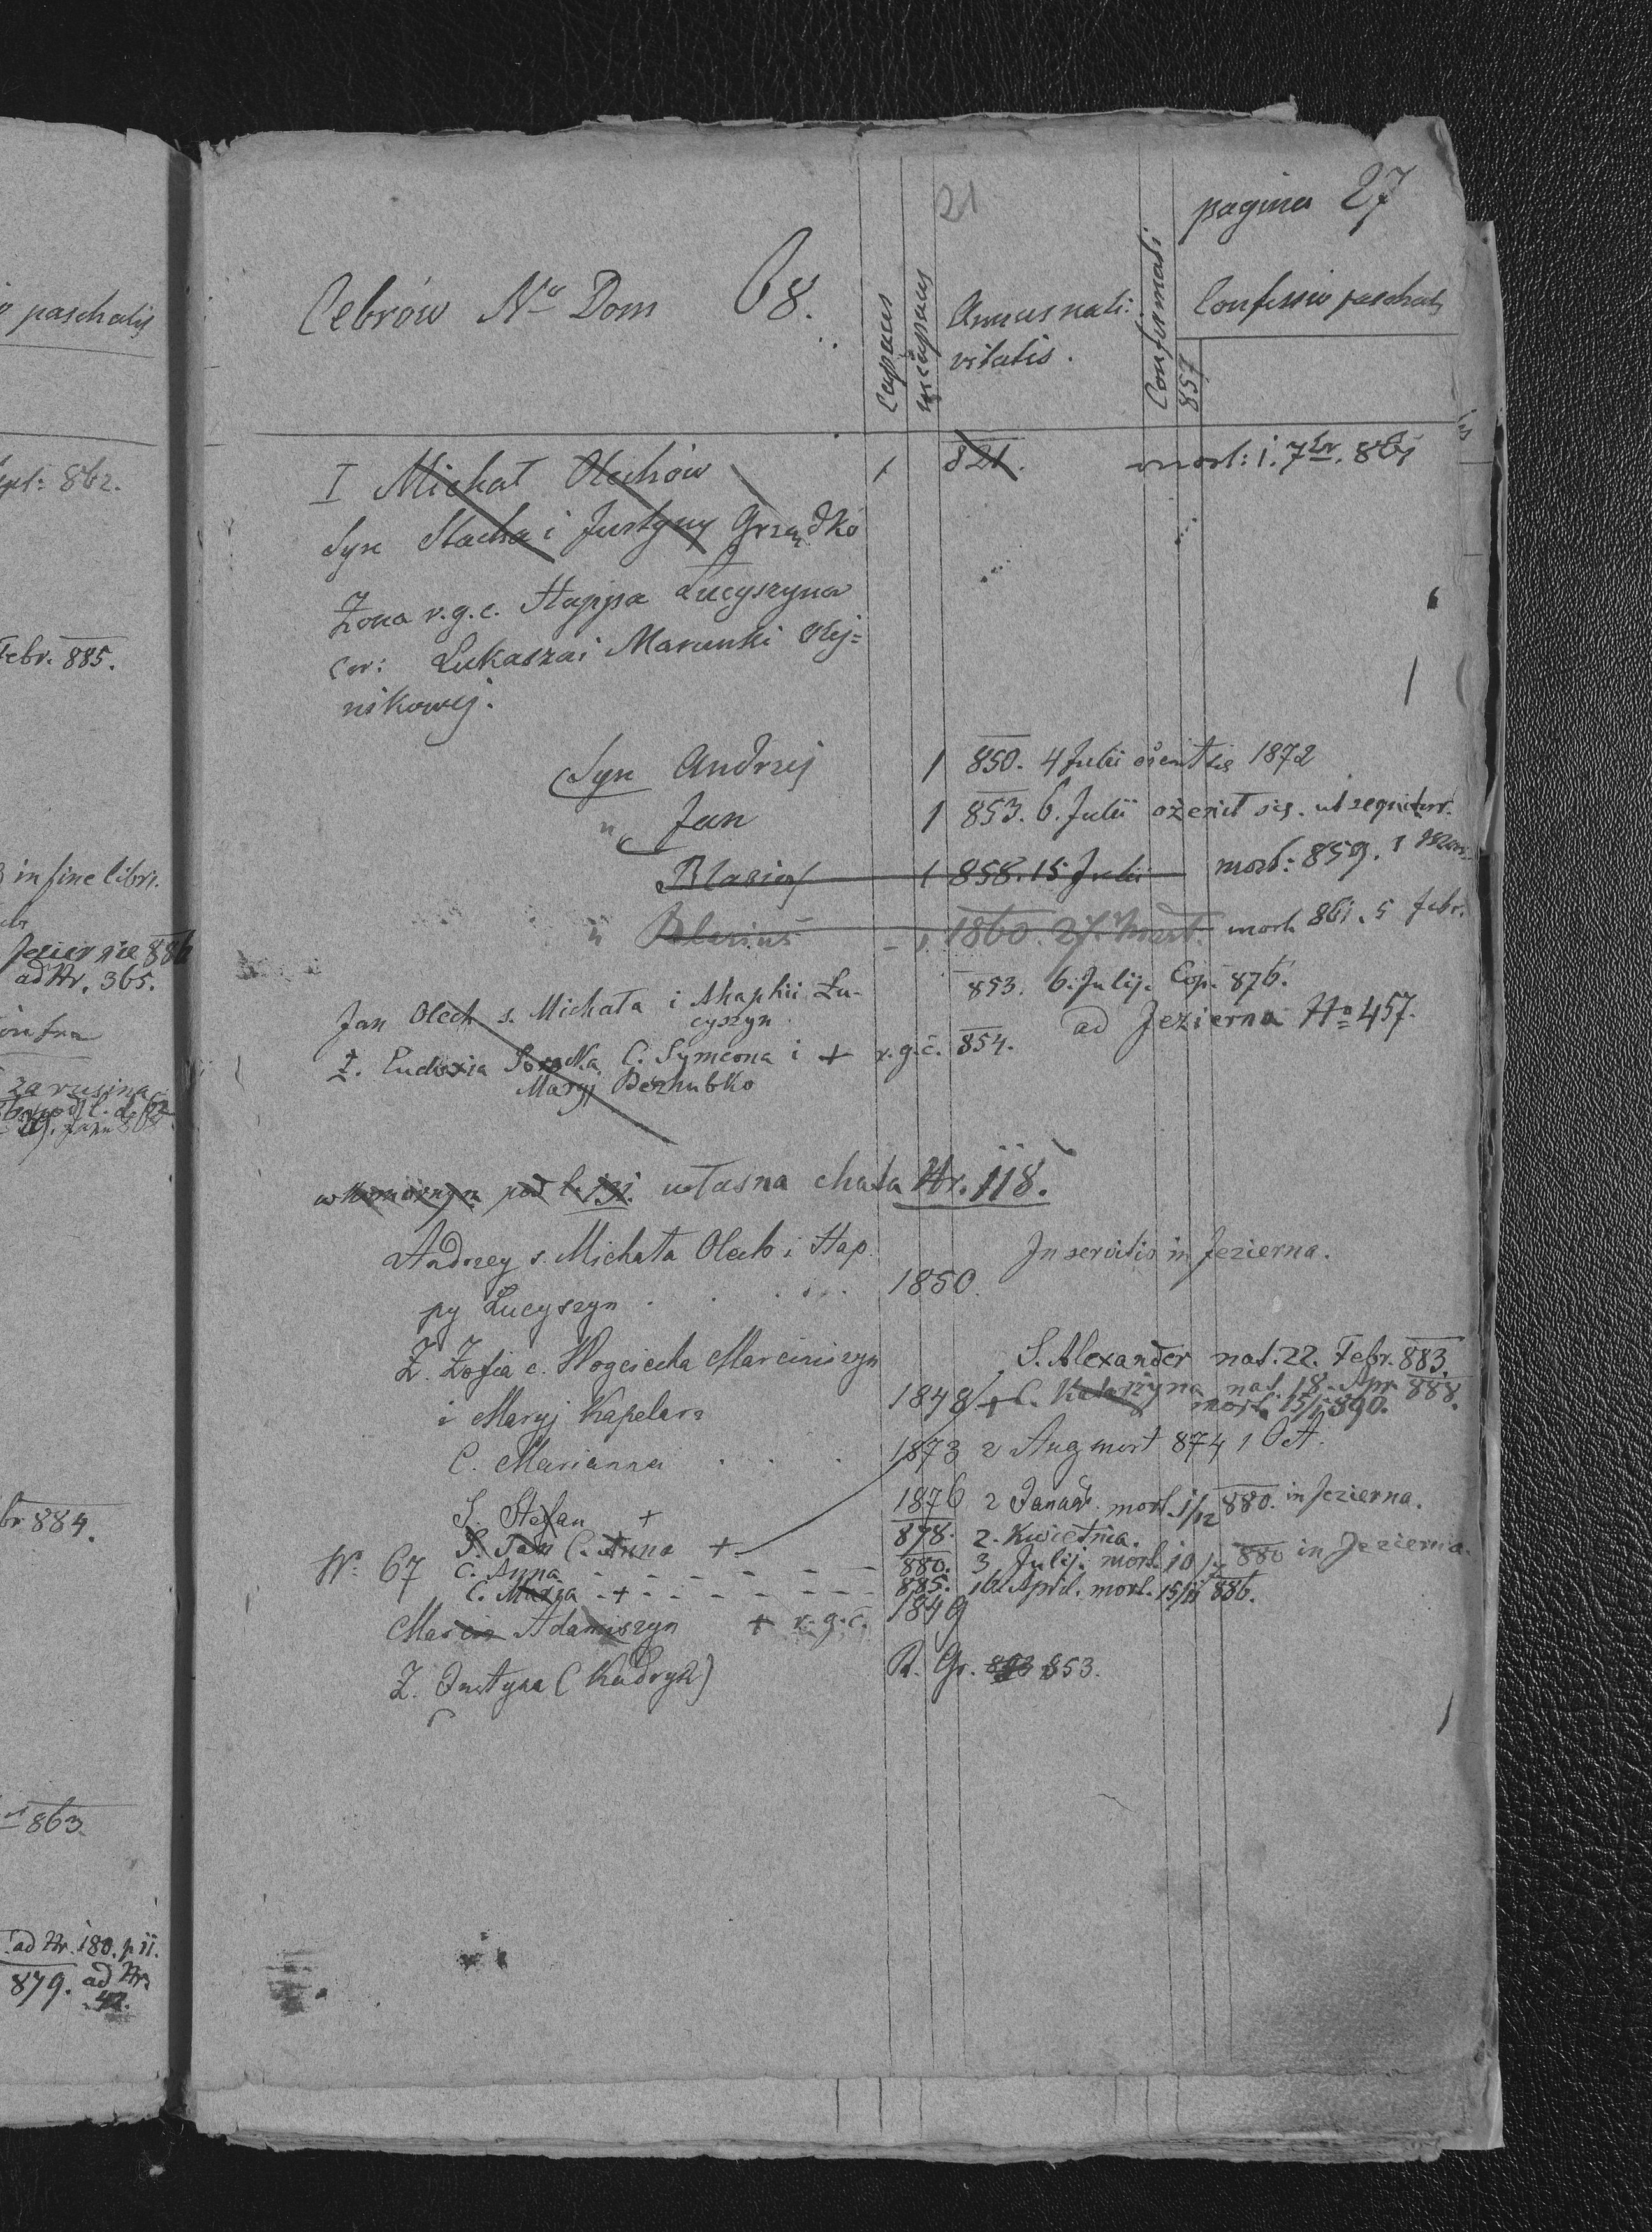 paschalis
862.
Febr. 885.
in fine libri.
Jezierzie 886
ad Nr. 365.
infra
za rusina
br 884.
863.
ad Nr. 180. p. ii.
879. ad Nr
42.
21
pagina 27
Cebrów No Dom 68.
Capaces
incapaces
Annus nati:
vitatis.
Confirmati
857
Confessio paschalis
I Michał Olechów 1 821. mort: 1. 7br. 861
Syn Stacha i Justyny Grządko
Żona r.g.c. Happa Łucyszyna
cor: Łukasza i Marunki Olej=
nikowej.
Syn Andrzej 1 850. 4 Julii ożenił się 1872
" Jan 1 853. 6. Julii ożenił się. ut sequitur.
Blasius 1 858. 15 Julii mort: 859. 1
" Blasius - 1. 1860. 27. Mart. mort. 861. 5 febr.
Jan Olech s. Michała i Ahaphii Łu-
cyszyn
853. 6. Julij. Cop. 876.
ad Jezierna No 457.
Ż. Eudoxia C. Symeona i + r.g.c. 854.
Maryj Bezhubko
w komornym pod l. 131. własna chata Nr. 118.
Andrzey s. Michała Olech i Hap
py Łucyszyn . . . . 1850.
In servitio in Jezierna.
Ż. Zofia c. Woyciecha Marciniszyn
i Maryj Kapelarz 1848
S. Alexander nat. 22. Febr. 883.
+ C. Katarzyna nat. 18. Apr. 888.
mort. 15/1 890.
C. Marianna . . . 1873 2 Aug mort 874 1 Oct.
S. Stefan + 1876 2 Januar. mort. 1/12 880. in Jezierna.
S. Jan C. Anna + 878. 2. Kwietnia.
Nr. 67 C. Anna - - - - - - 880. 3. Julij. mort. 10 880 in Jezierna.
C. Maria - + - - - - - 885. 16 April. mort. 15/11 886.
Marcin Adamiszyn + r.g.c. 1849
Ż. Justyna (Kudryk) R. Gr. 853.